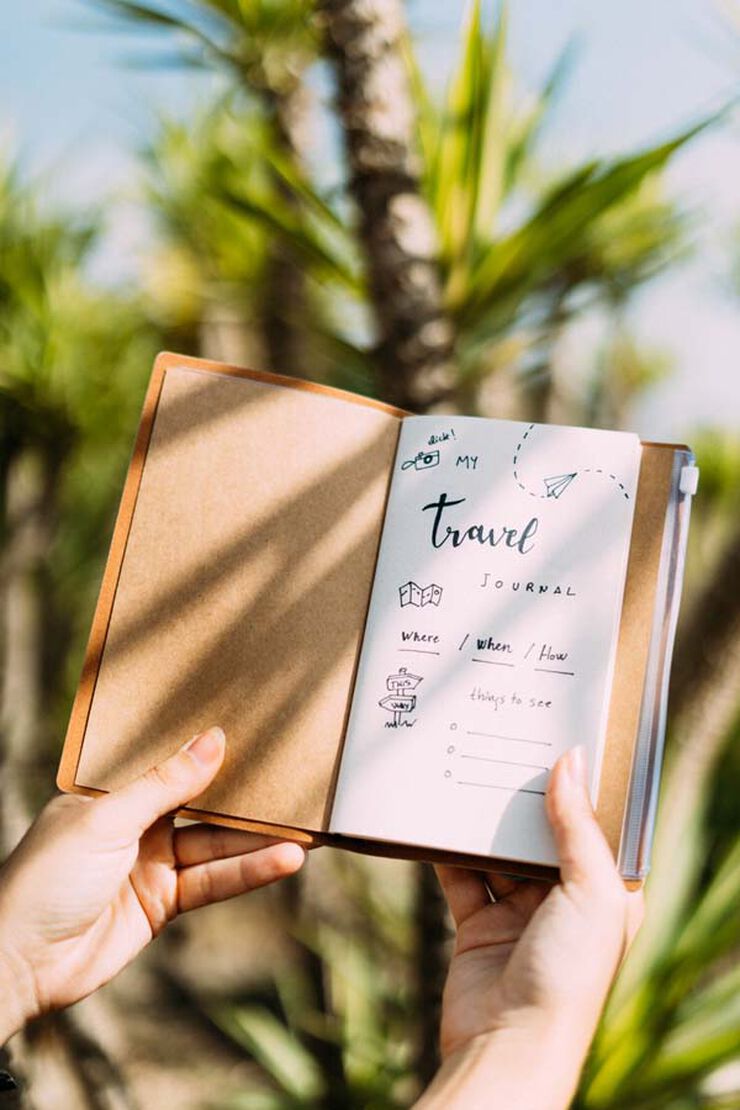 click!
MY
Travel
JOURNAL
Where / When / How
THIS
WAY
things to see